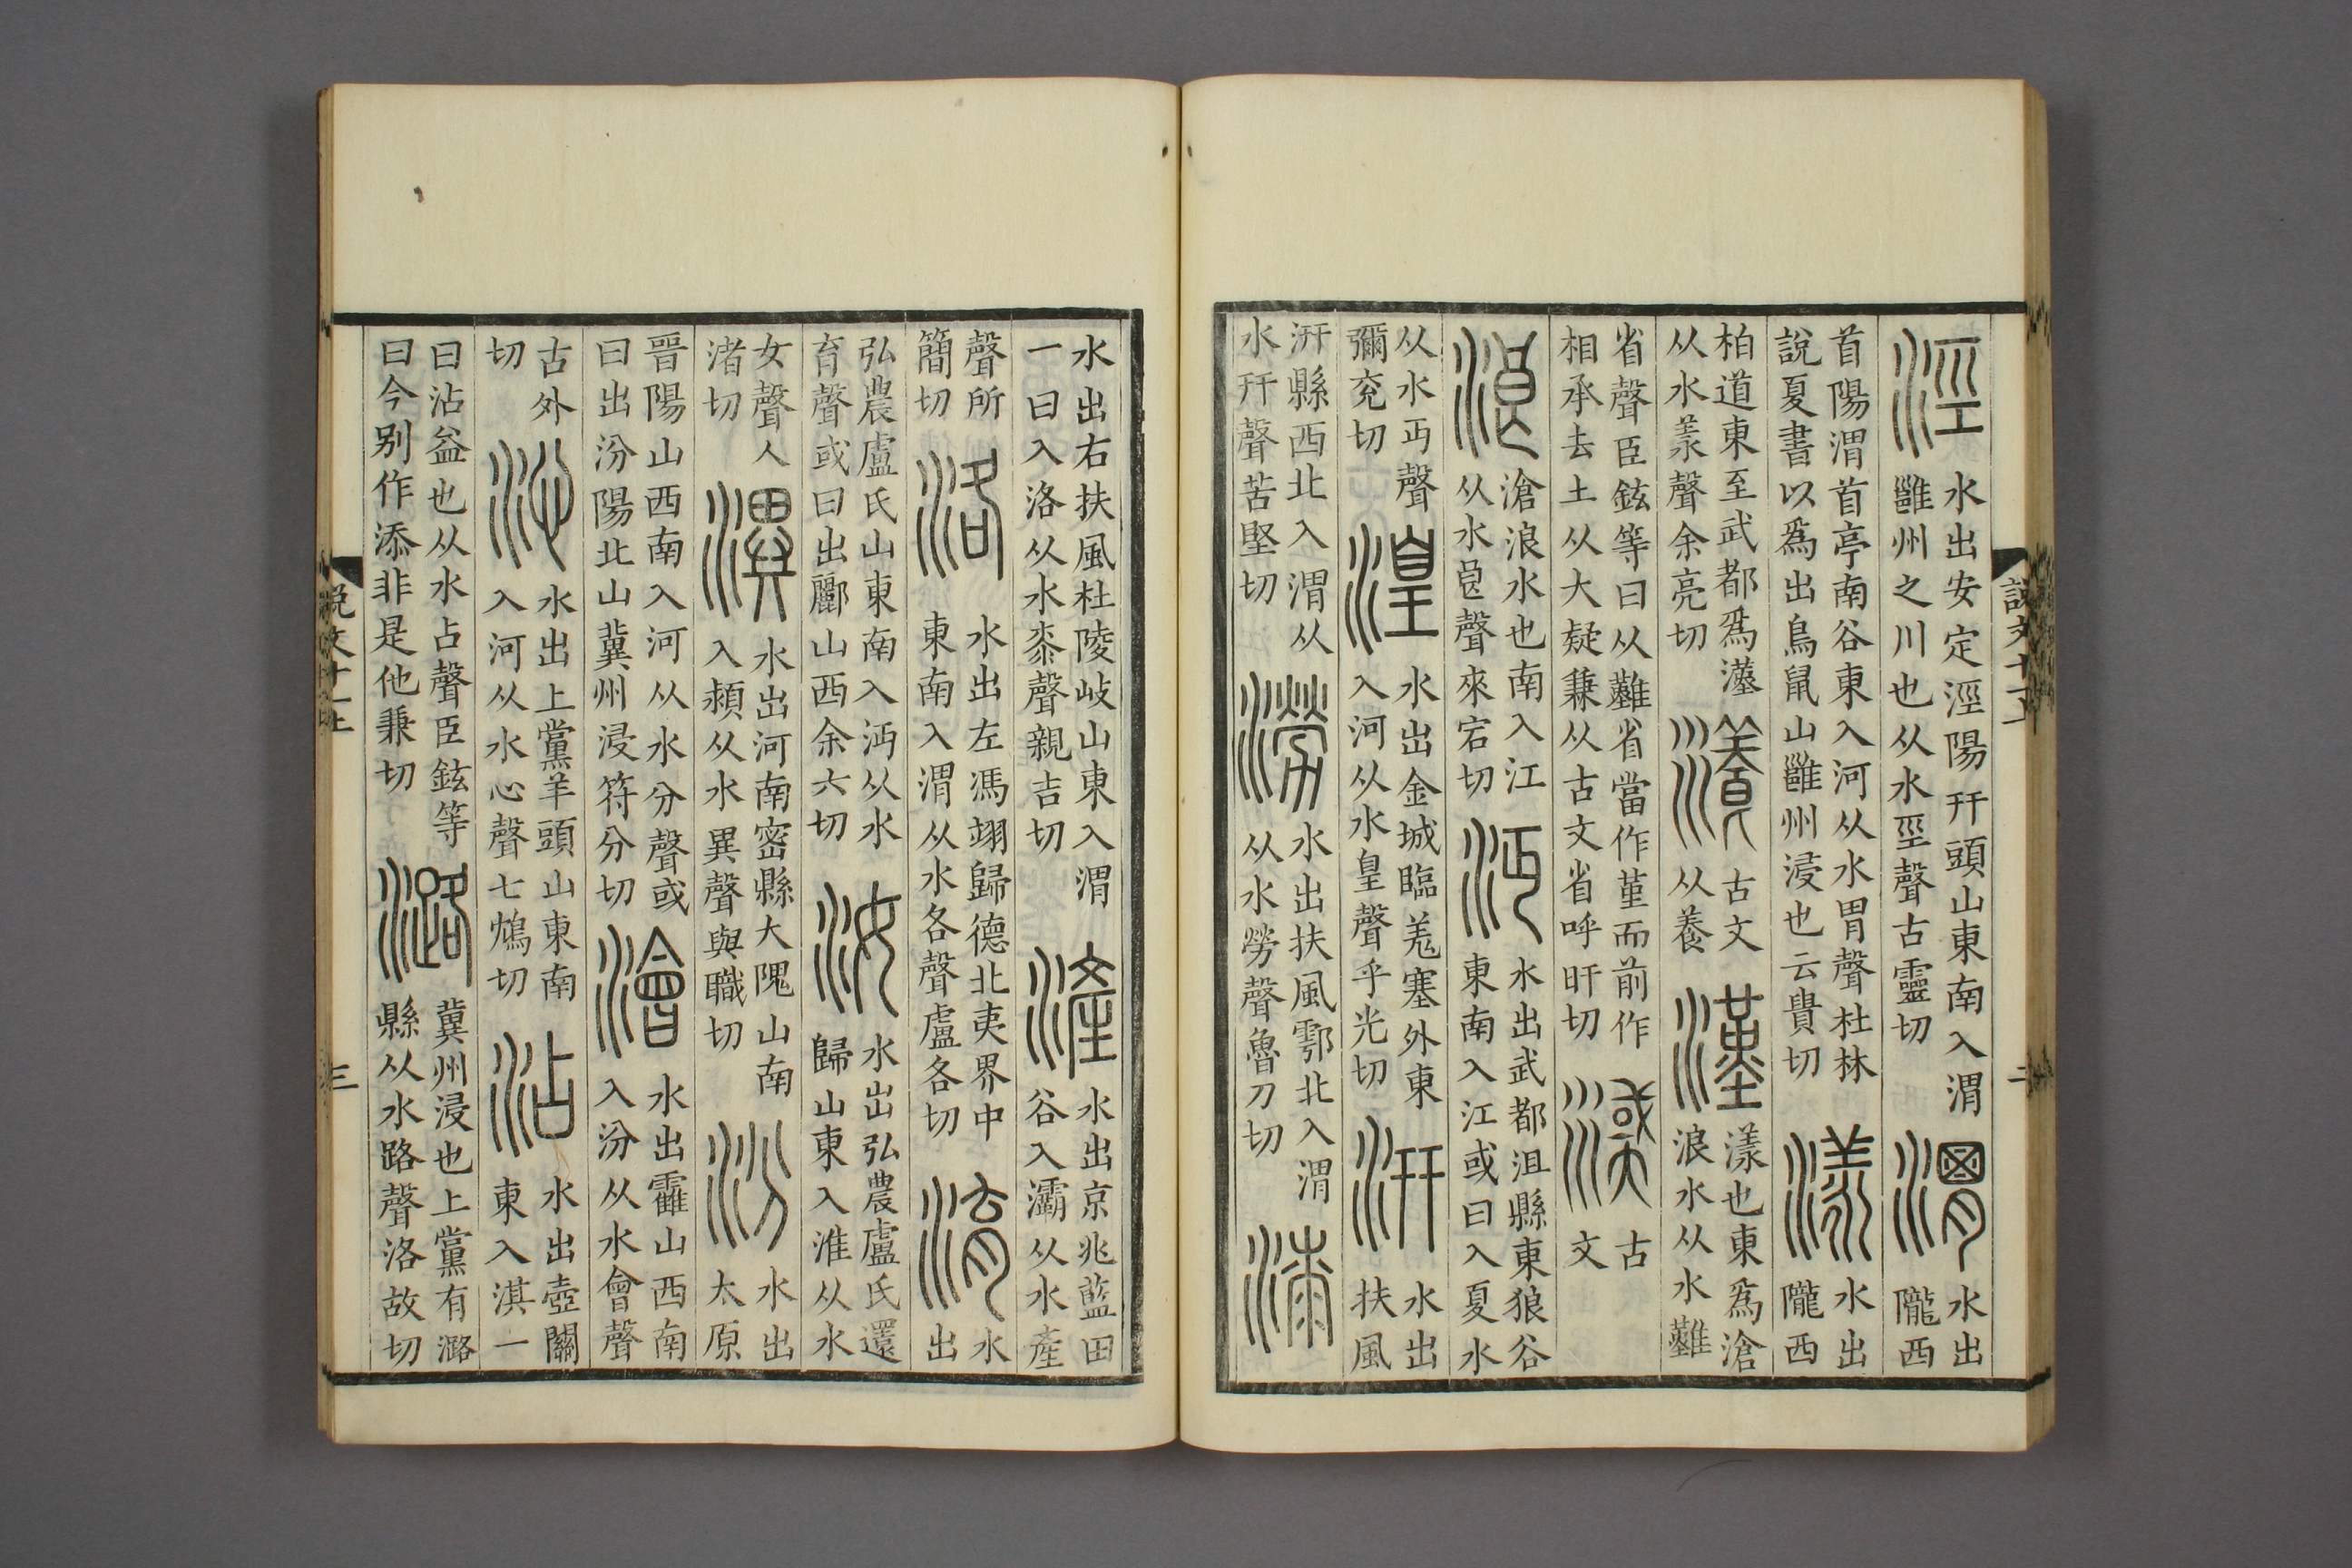 涇水出安定涇陽幵頭山東南入渭雝州之川也从水巠聲古靈切渭水出隴西
首陽渭首亭南谷東入河从水胃聲杜林說夏書以爲出鳥鼠山雝州浸也云貴切漾水出隴西
柏道東至武都爲漢从水羕聲余亮切瀁古文从養漢漾也東爲滄浪水从水難
省聲臣鉉等曰从難省當作堇而前作相承去土从大疑兼从古文省呼旰切㵄古文
浪滄浪水也南入江从水良聲來宕切沔水出武都沮縣東狼谷東南入江或曰入夏水
从水丏聲彌兖切湟水出金城臨羌塞外東入河从水皇聲乎光切汧水出扶風
汧縣西北入渭从水幵聲苦堅切澇水出扶風鄠北入渭从水勞聲魯刀切漆
水出右扶風杜陵岐山東入渭一曰入洛从水桼聲親吉切滻水出京兆藍田谷入灞从水產
聲所簡切洛水出左馮翊歸德北夷界中東南入渭从水各聲盧各切淯水出
弘農盧氏山東南入沔从水育聲或曰出酈山西余六切汝水出弘農盧氏還歸山東入淮从水
女聲人渚切潩水出河南密縣大隗山南入潁从水異聲與職切汾水出太原
晉陽山西南入河从水分聲或曰出汾陽北山冀州浸符分切澮水出靃山西南入汾从水會聲
古外切沁水出上黨羊頭山東南入河从水心聲七鴆切沾水出壺關東入淇一
曰沾益也从水占聲臣鉉等曰今别作添非是他兼切潞冀州浸也上黨有潞縣从水路聲洛故切
說文十一上
三